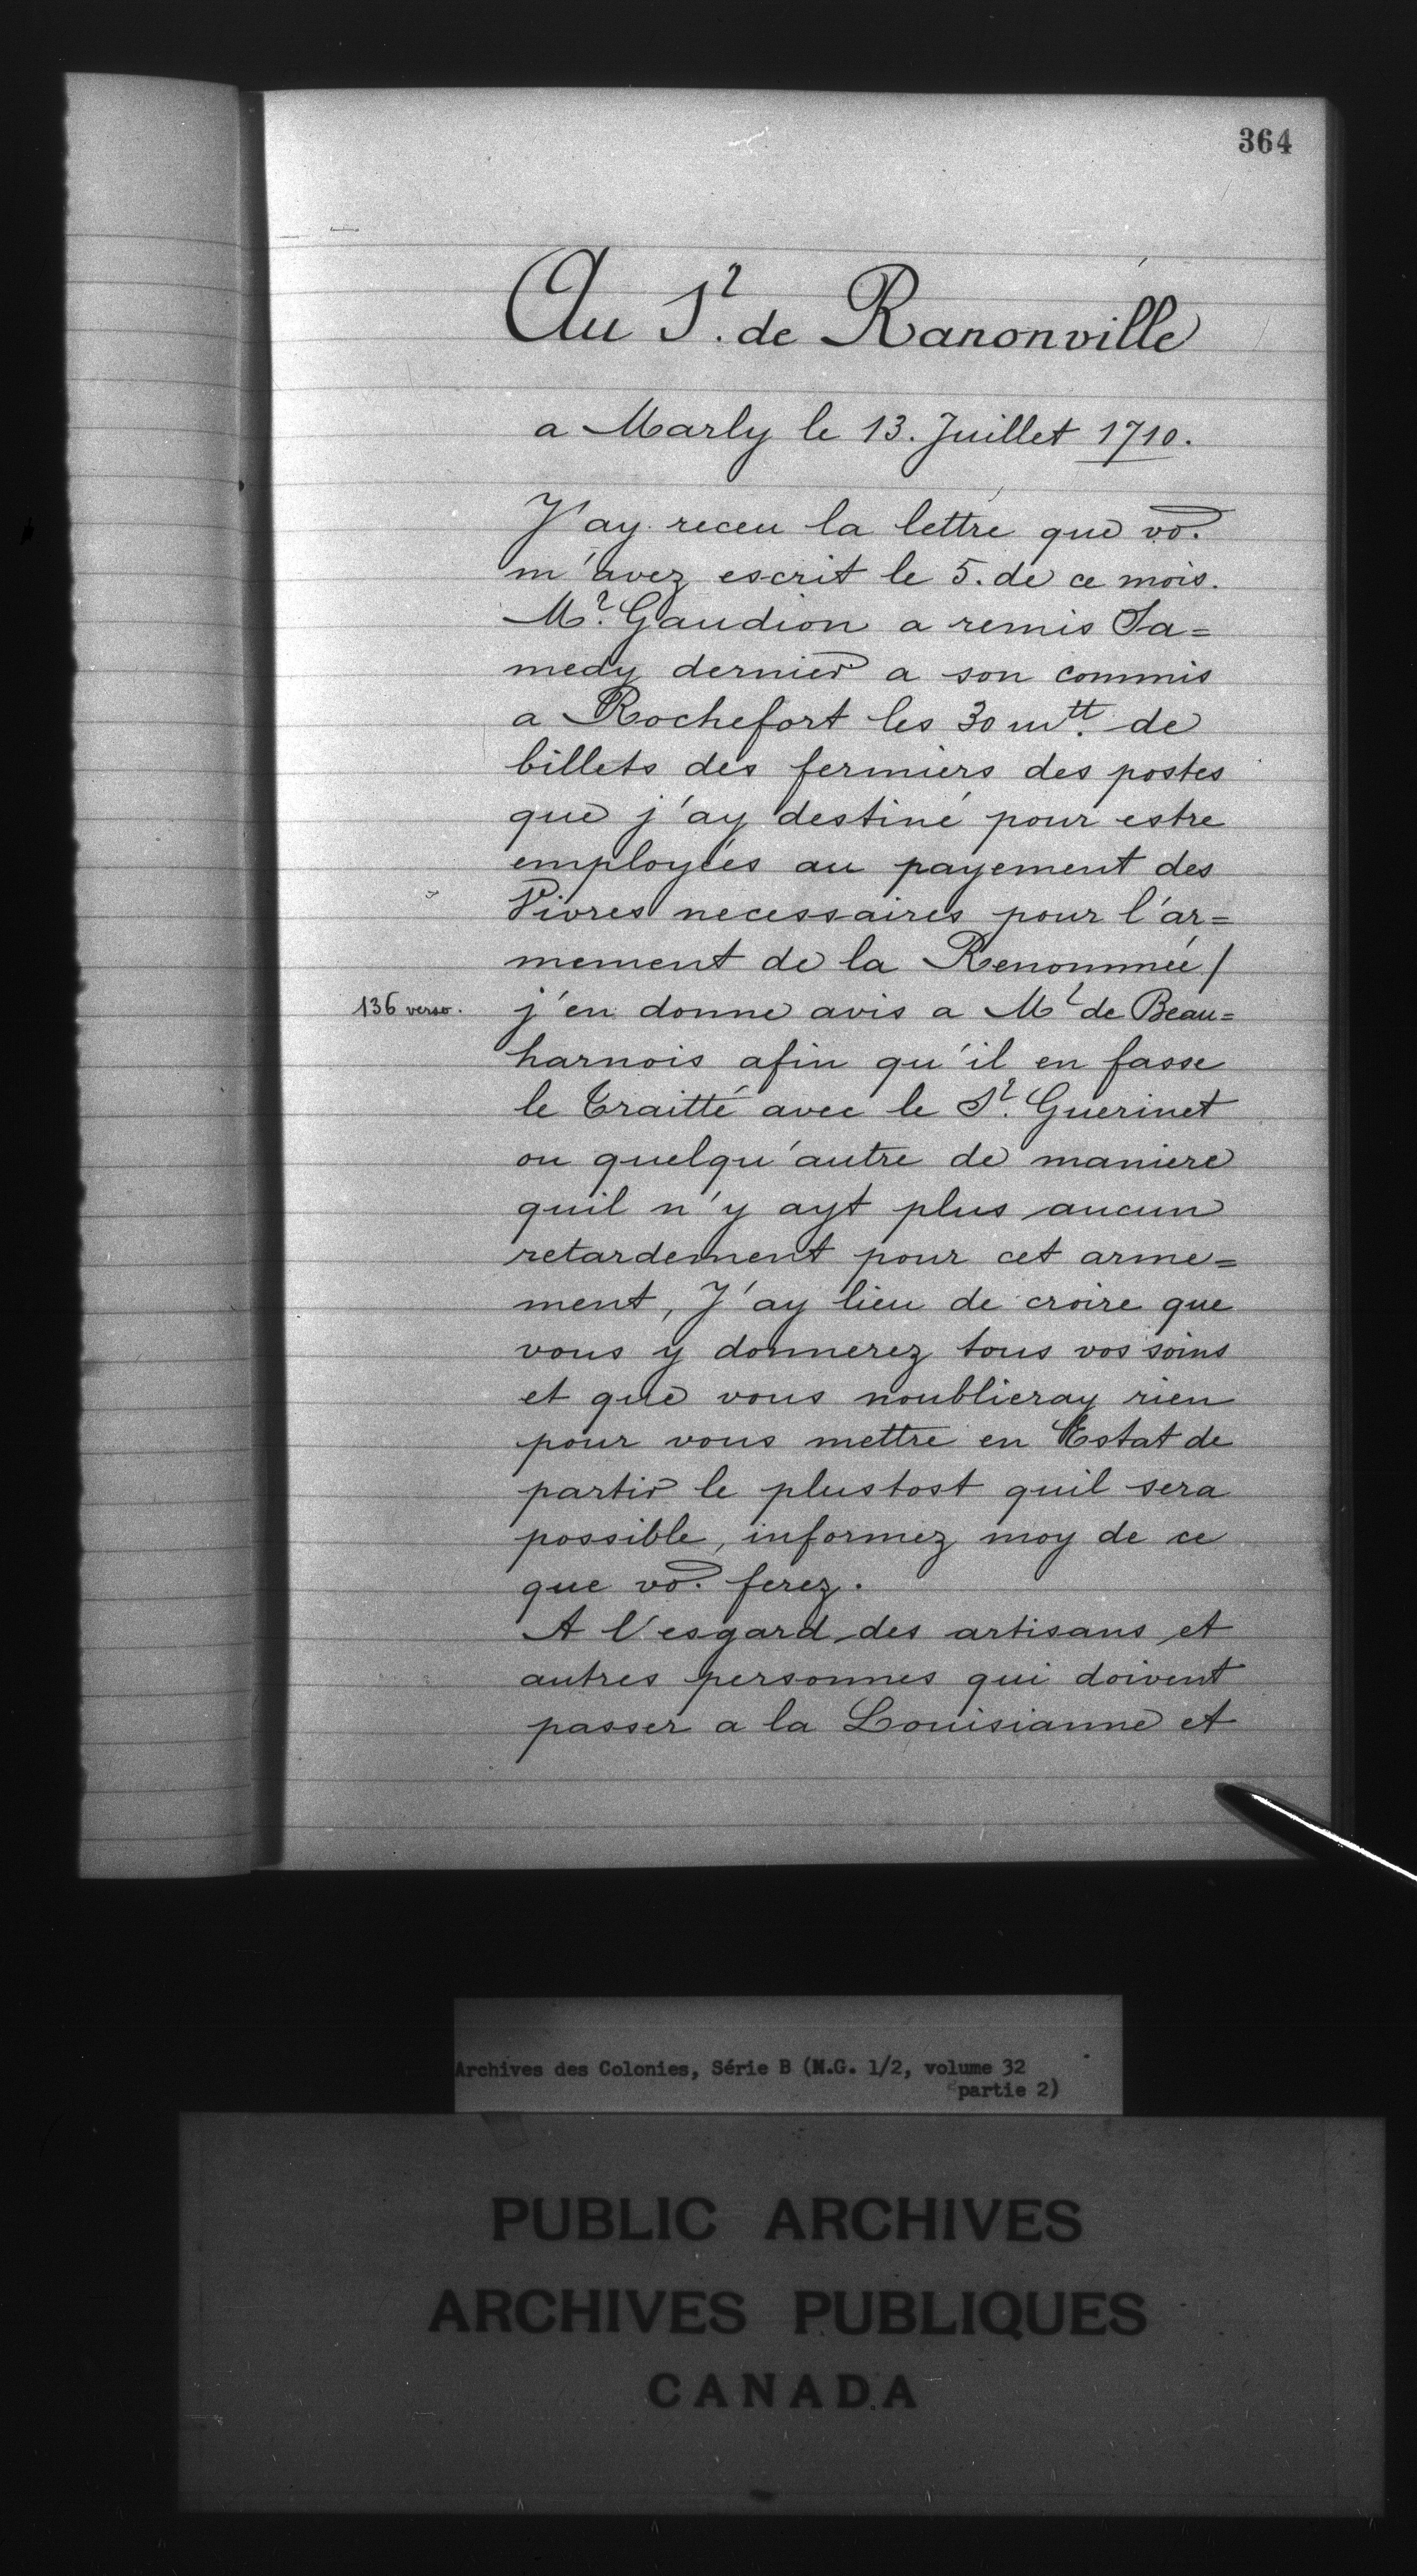 364
Au S.r de Ranonville
a Marly le 13. Juillet 1710.
J'ay receu la lettre que vo.
m'avez escrit le 5. de ce mois.
M.r Gaudion a remis Sa=
medy dernier a son commis
a Rochefort les 30 m tt. de
billets des fermiers des postes
que j'ay destiné pour estre
employées au payement des
Vivres necessaires pour l'ar=
mement de la Renommée /
136 verso. j'en donne avis a Mr de Beau=
harnois afin qu'il en fasse
le Traitté avec le S.r Guerinet
ou quelqu'autre de maniere
quil n'y ayt plus aucun
retardement pour cet arme=
ment, J'ay lieu de croire que
vous y donnerez tous vos soins
et que vous noublieray rien
pour vous mettre en Estat de
partir le plustost quil sera
possible, informez moy de ce
que vo. ferez.
A l'esgard des artisans et
autres personnes qui doivent
passer a la Louisianne et
Archives des Colonies, Série B (M.G. 1/2, volume 32
partie 2)
PUBLIC ARCHIVES
ARCHIVES PUBLIQUES
CANADA